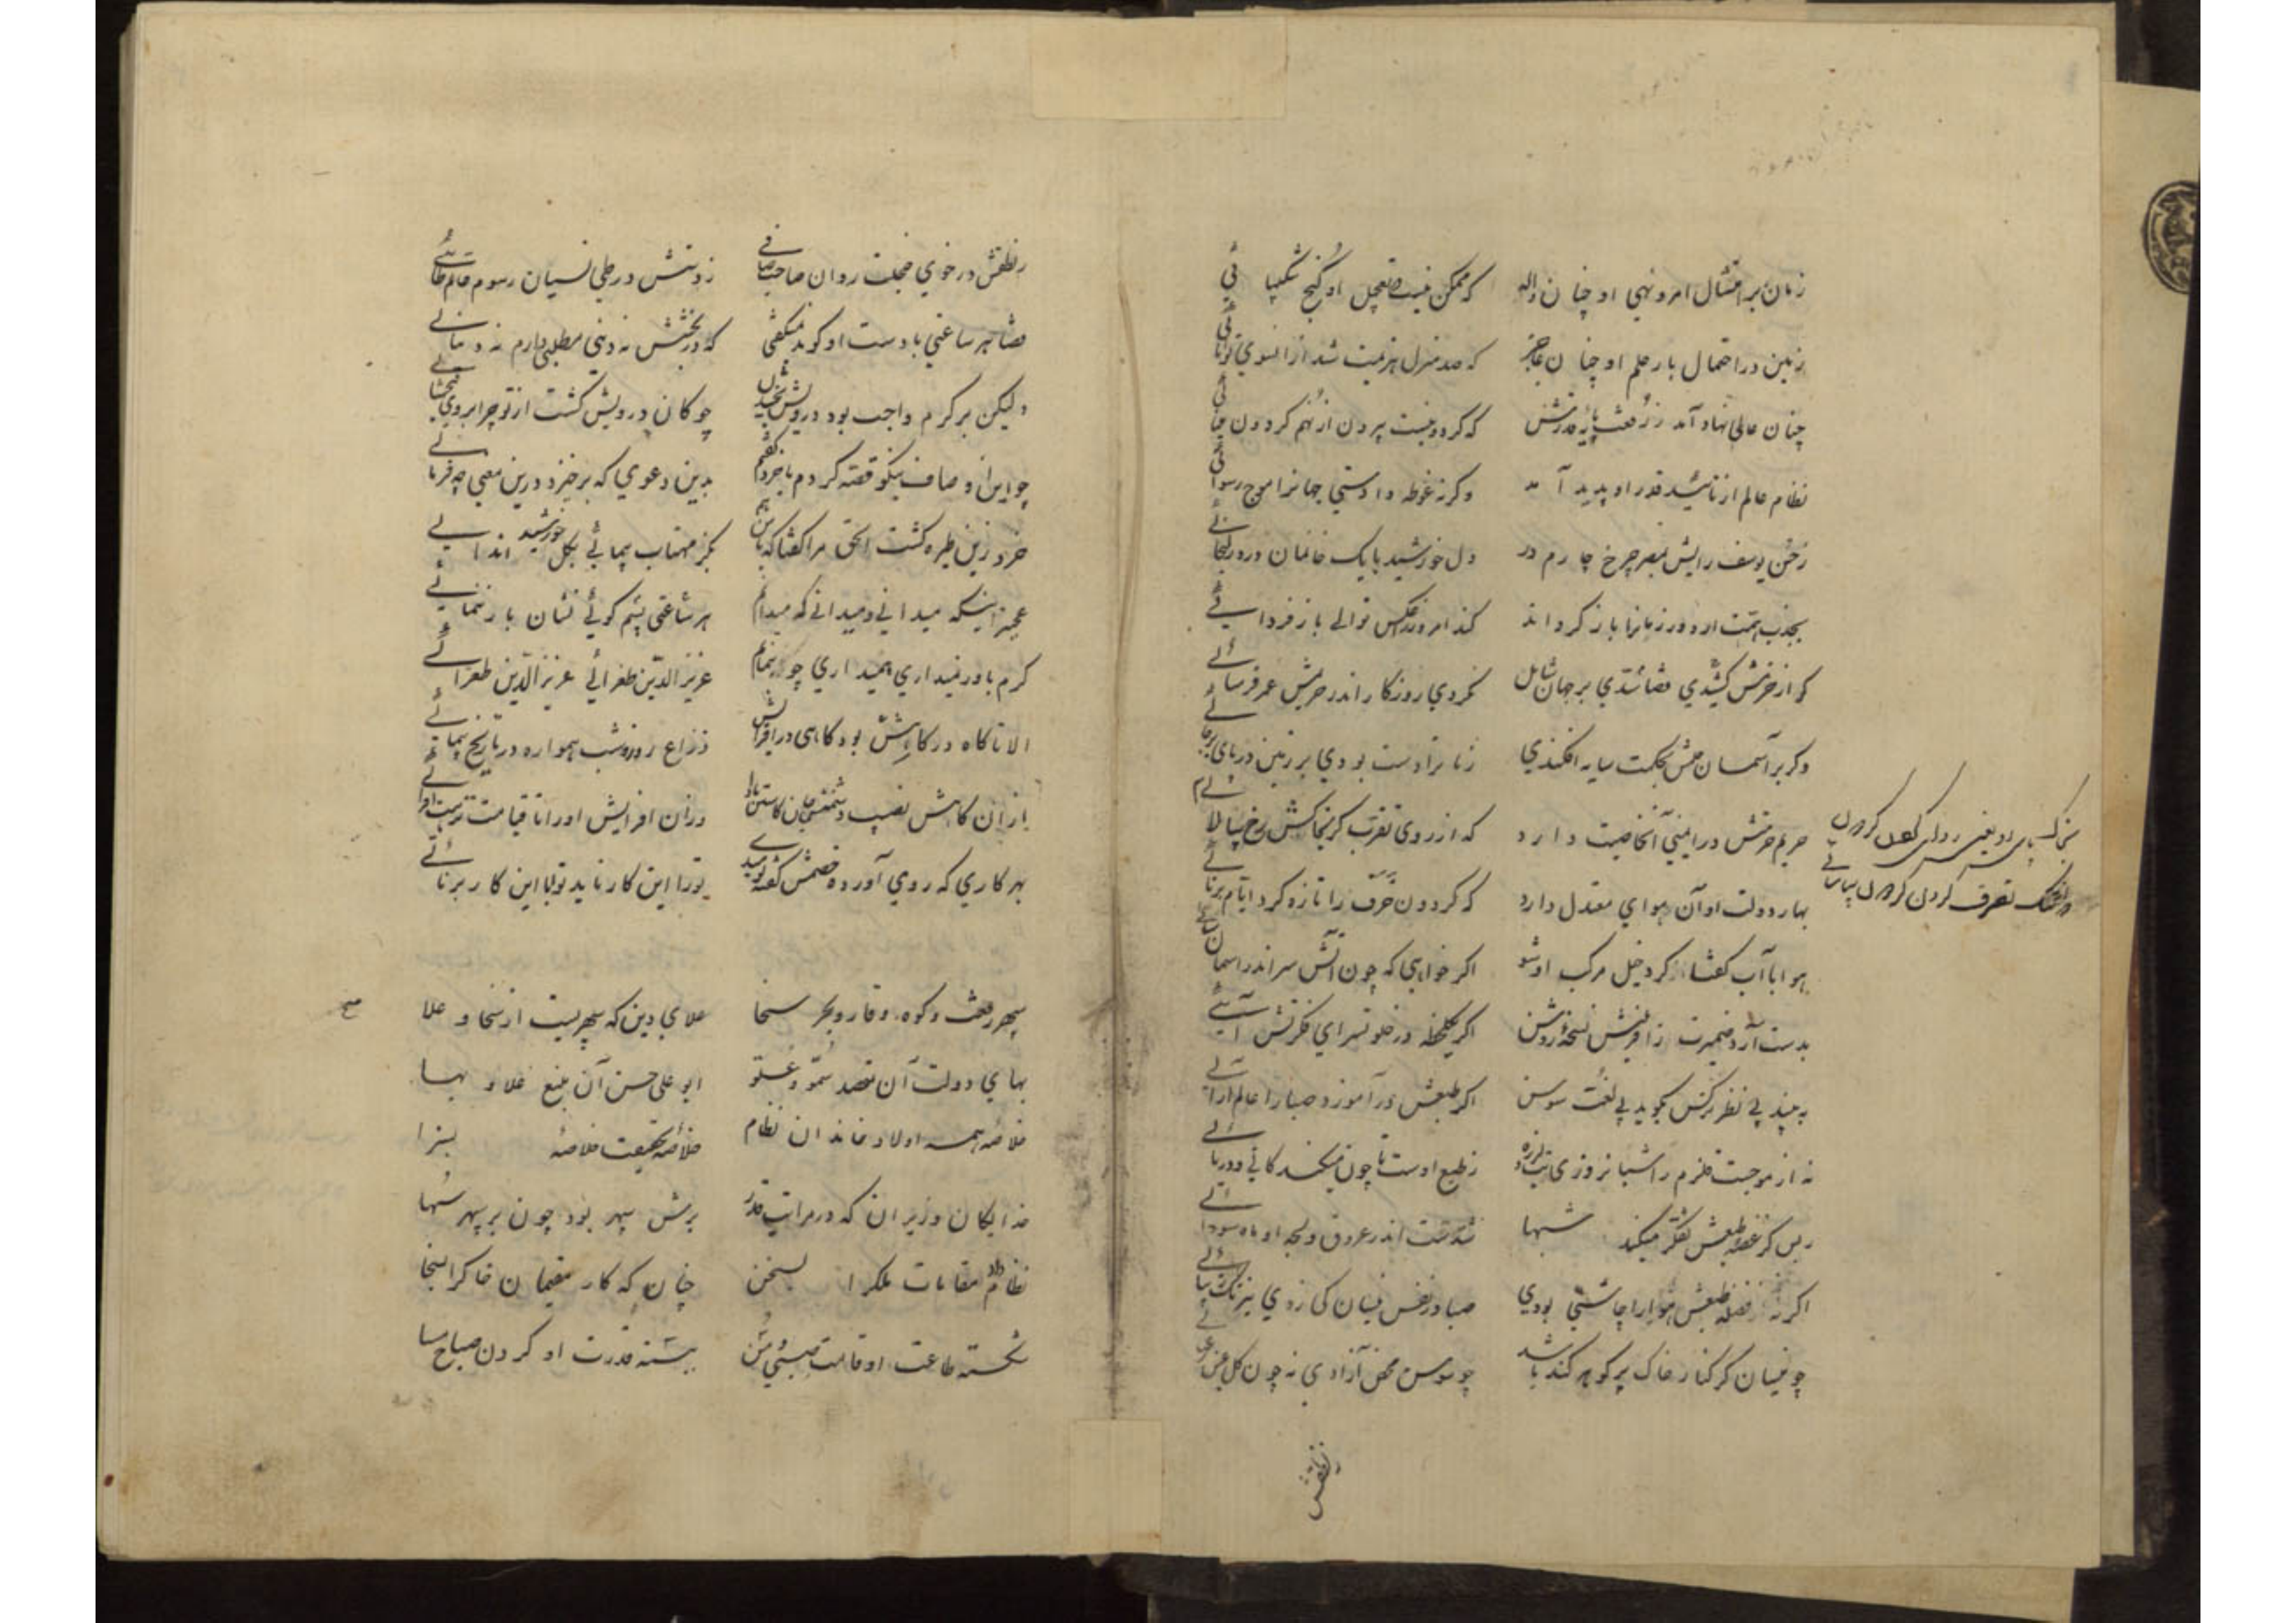 زمان بر امتثال امر و نهی او چنان واله که ممکن نیست در تعجیل او گنج شکیبائی
زمین در احتمال بار حلم او چنان عاجز که صد منزل هزیمت شد از انسوی توانائی
چنان عالی نهاد آمد ز رفعت پایهٔ قدرش که گردونیست بیرون از نهم گردون
نظام عالم از تائید قدر او پدید آمد وگرنه غوطه دادستی جهانرا موج رسوائی
ز حسن یوسف رایش بمصر چرخ چارم در دل خورشید با یک خانمان درد زلیخائی
بجذب همت او دور زمانرا باز گرداند کند امروز بر عکس توالی باز فردائی
گر از حزمش کشیدی قضا سدی بر جهان شامل نکردی روزگار اندر حریمش عمر فرسائی
وگر بر آسمان حلمش بحکمت سایه افکندی زمانرا دست بودی بر زمین در پای برجائی
حریم حرمتش در ایمنی آن خاصیت دارد که از روی تقرب گر بخاکش رخ بیالائی
بهار دولت او آن هوای معتدل دارد که گردون خرف را تازه کرد ایام برنائی
هوا با آب گفتا گرد خیل مرکب او شو اگر خواهی که چون آتش سر اندر اسمان سائی
بدست آرد ضمیرت ز آفرینش نسخهٔ روشن اگر یکلحظه در خلوتسرای فکرتش آئی
به بیند بی نظر نرگس بگوید بی لغت سوسن اگر طبعش در آموزد صبا را عالم آرائی
نه از موجست قلزم را شبانروزی تب لرزه ز طبع اوست تا چون میکند کانی و دریائی
ز بس کز غصهٔ طبعش تفکر میکند شبها شدست اندر عروق لجهٔ او ماده سودائی
اگر نه فضلهٔ طبعش هوا را چاشنی بودی صبا در نقش نیسان کی زدی نیرنگ
چو نیسان گر کنار خاک پر گوهر کند باشد چو سوسن محض آزادی نه چون گل عین رعنائی
ز نطقش
ز نطقش در خوی خجلت روان صاحب صافی ز دستش در طی نسیان رسوم حاتم طائی
قضا هر ساعتی با دست او گوید نمیگفتی که در بخشش نه دینی مطلبی دارم نه دنیائی
ولیکن بر کرم واجب بود درویش بخشیدن چو کان درویش گشت از تو چرا بر وی نبخشائی
چو این اوصاف نیکو قصه کردم با خرد گفتم بدین دعوی که برخیزد درین معنی چه فرمائی
خرد زین طیره گشت الحق مرا گفتا که با من هم بگز مهتاب پیمائی بگل خورشید اندائی
عجبتر اینکه میدانی و میدانی که میدانم هر ساعتی پیشم گوئی نشان باز ننمائی
گرم باور نمیداری همیداری چو بنمایم عزیز الدین طغرائی عزیز الدین طغرائی
الا تا گاه در کاهش بود گاهی در افزایش ذراع روز و شب همواره در تاریخ پیمائی
از ان کاهش نصیب دشمنش جان کاستن بادا وزان افزایش او را تا قیامت
بهر کاری که روی آورده خصمش گفته نومیدی تو را این کار ناید تو با این کار برنائی
سپهر رفعت و کوه وقار و بحر سخا علای دین که سپهریست از سخا و علا
بهای دولت آن مقصد سمو و علو ابو علی حسن آن منبع علاو بها
خلاصهٔ همه اولاد خاندان نظام خلاصهٔ بحقیقت خلاصهٔ بسزا
خدایگان وزیران که در مراتب قدر برش سپهر بود چون بر سپهر سها
نظام داد مقامات ملک را بسخن چنان که کار مقیمان خاک را بسخا
شکسته طاعت او قامت صبی و مسن ببسته قدرت او گردن صباح و مسا